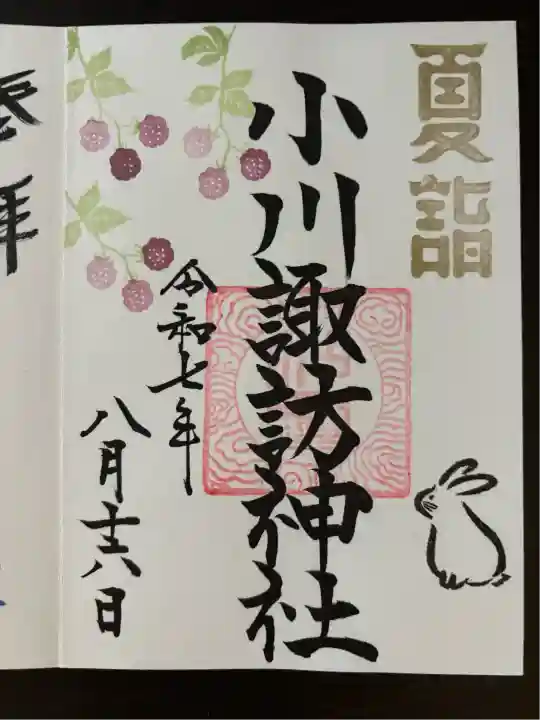 夏詣
小川諏訪神社
令和七年
八月十六日
拝